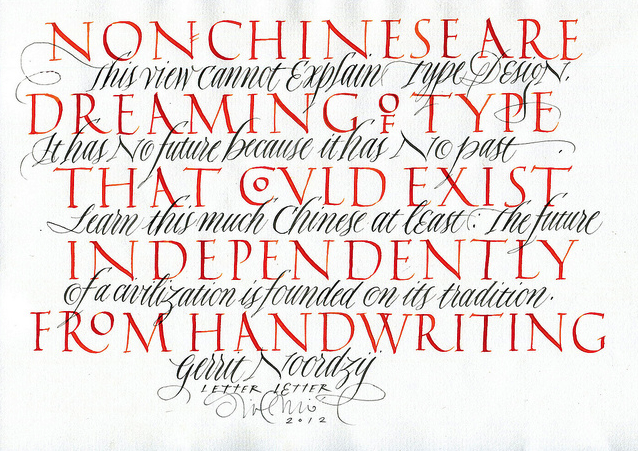 NONCHINESE ARE
This view cannot Explain Type DesigN.
DREAMING OF TYPE
It has No future because it has No past
THAT COVLD EXIST
Learn this much Chinese at lEast: The future
INDEPENDENTLY
of a civilization is founded on its tradition.
FROM HANDWRITING
Gerrit Noordzij
LETTER LETTER
2012